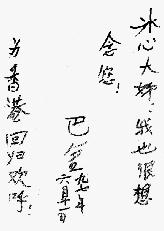 冰心大姊：我也很想
念您！
巴金 九七年
六月十日
为香港回归欢呼！